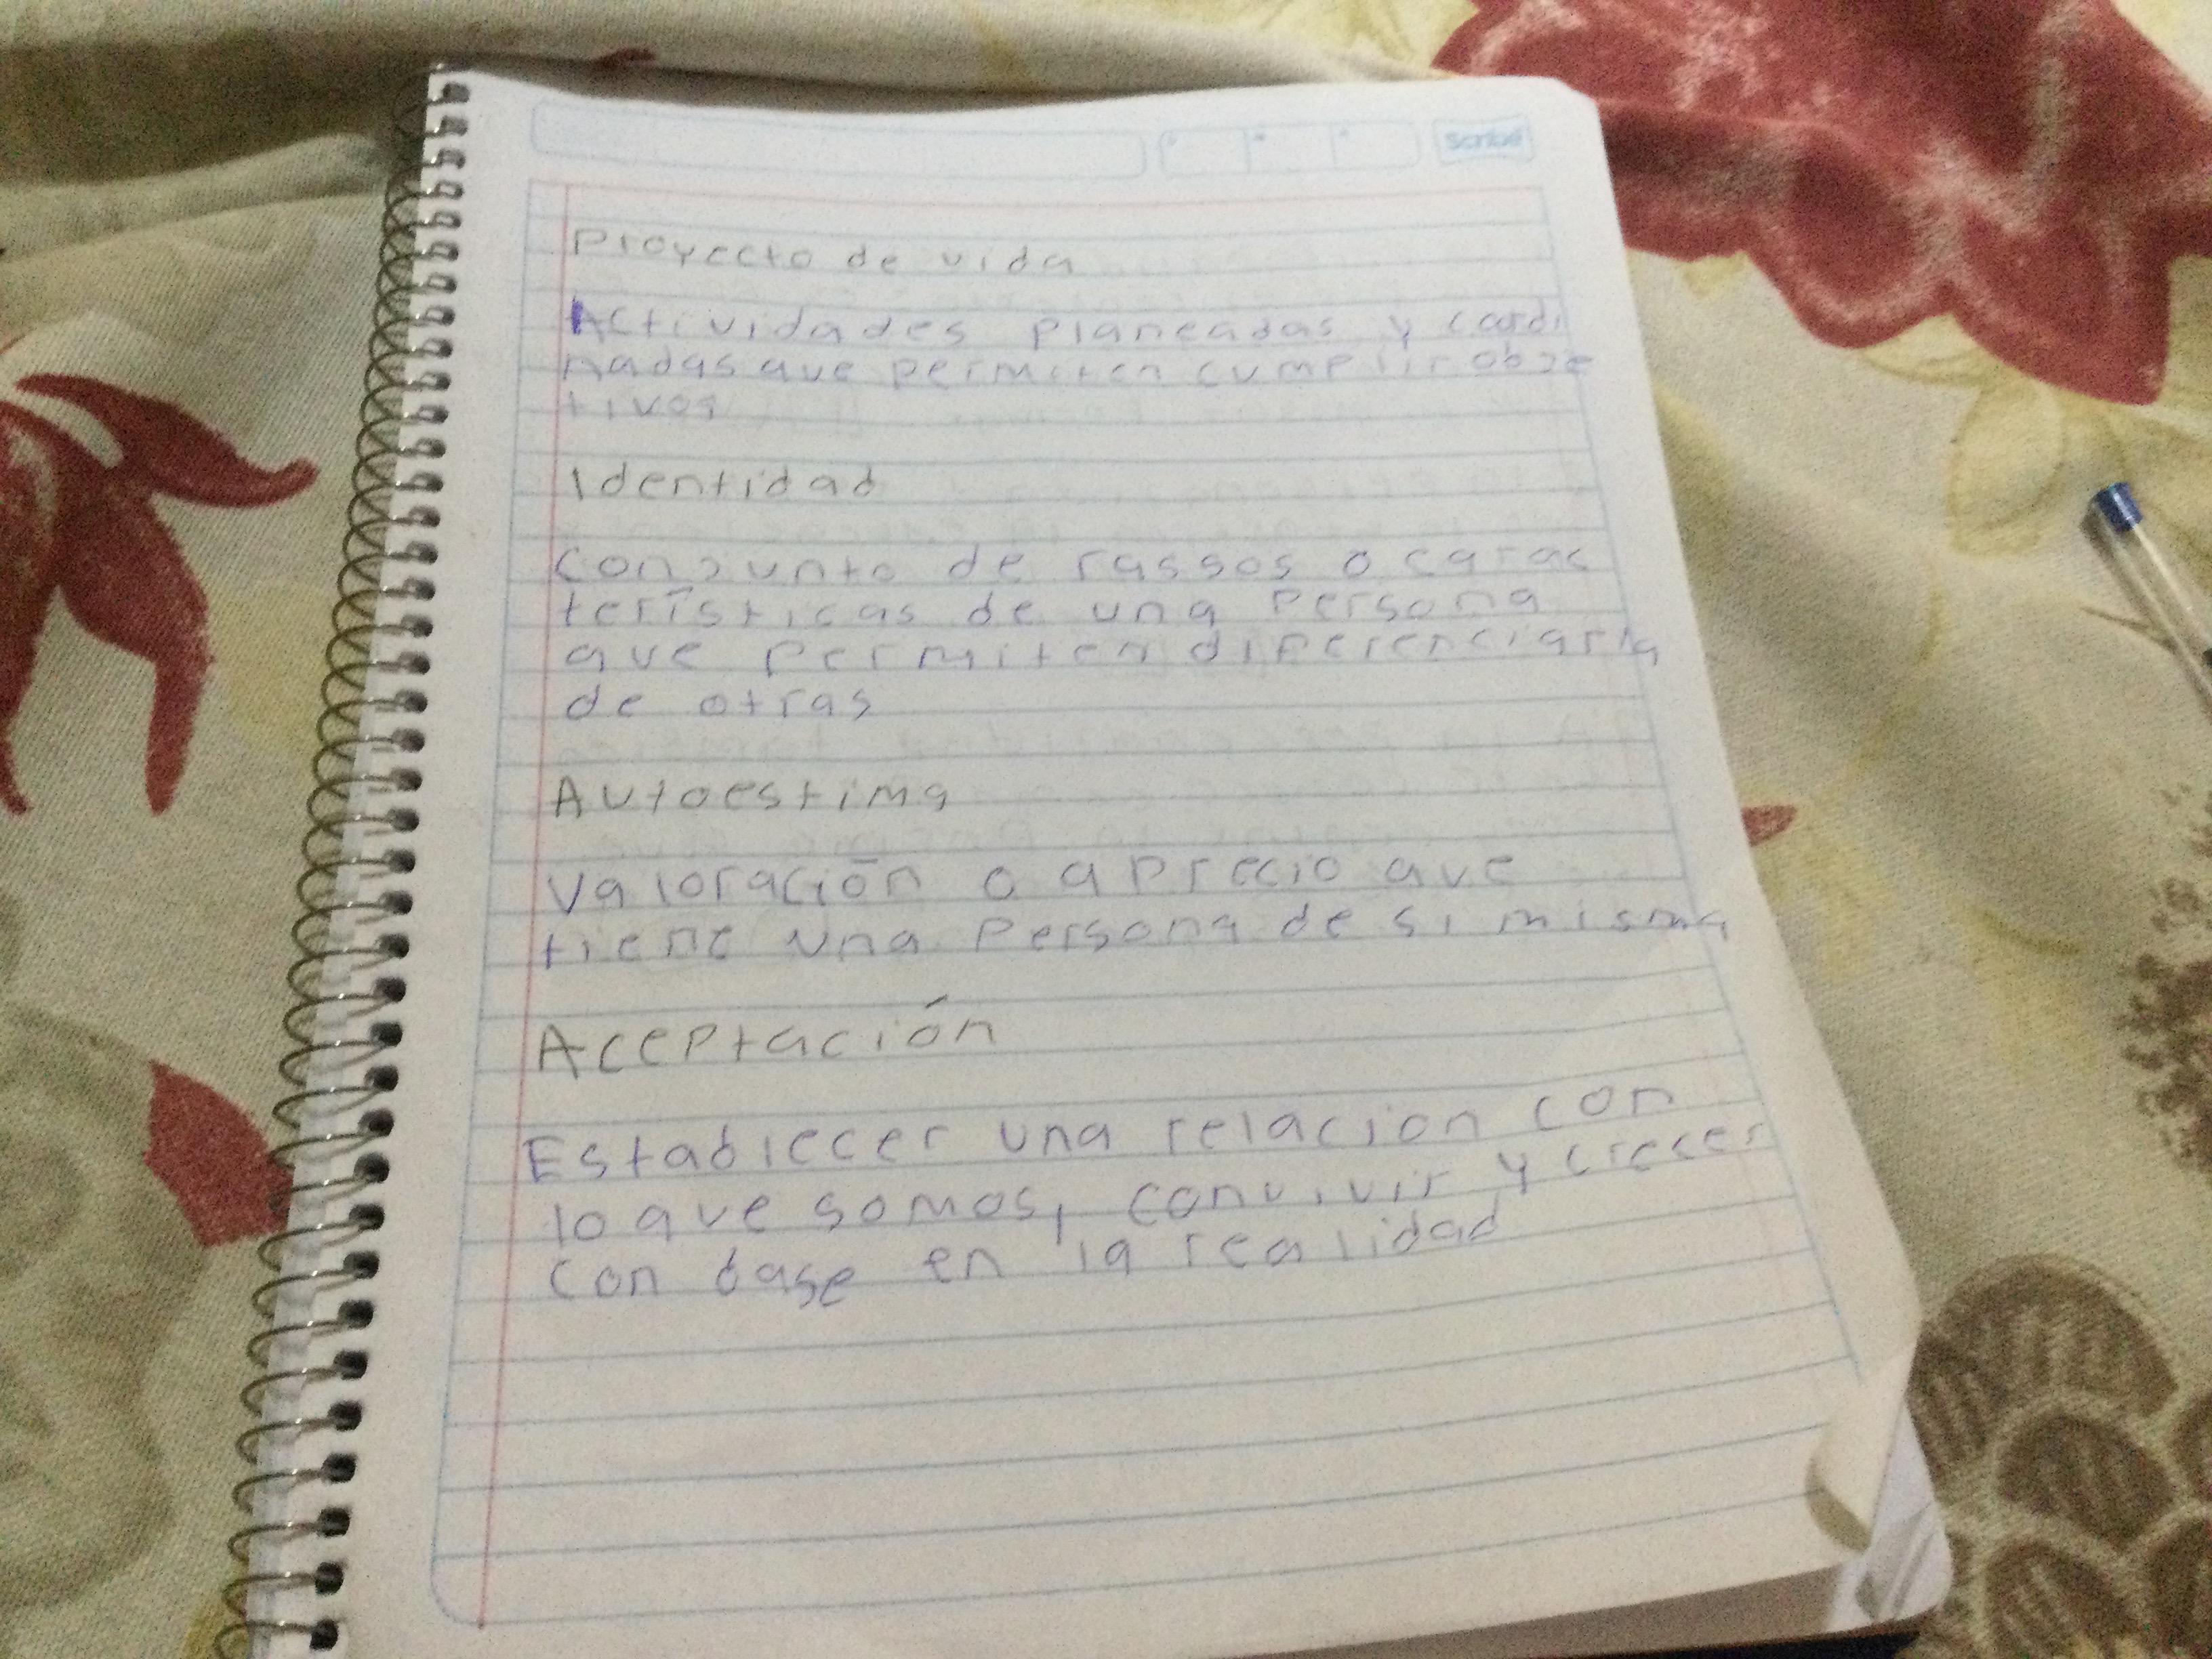 Scribe
Proyecto de vida
Actividades planeadas y cordi
nadas que permiten cumplir obje
tivos
Identidad
Conjunto de rasgos o carac
terísticas de una persona
que permiten diferenciarla
de otras
Autoestima
Valoración o aprecio que
tiene una persona de si misma
Aceptación
Establecer una relacion con
lo que somos, convivir y crecer
con base en la realidad